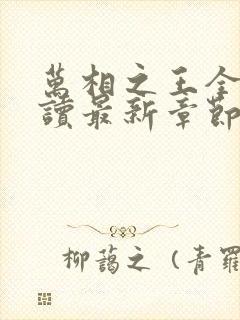 萬相之王全
讀最新章節
柳蕩之（青羅